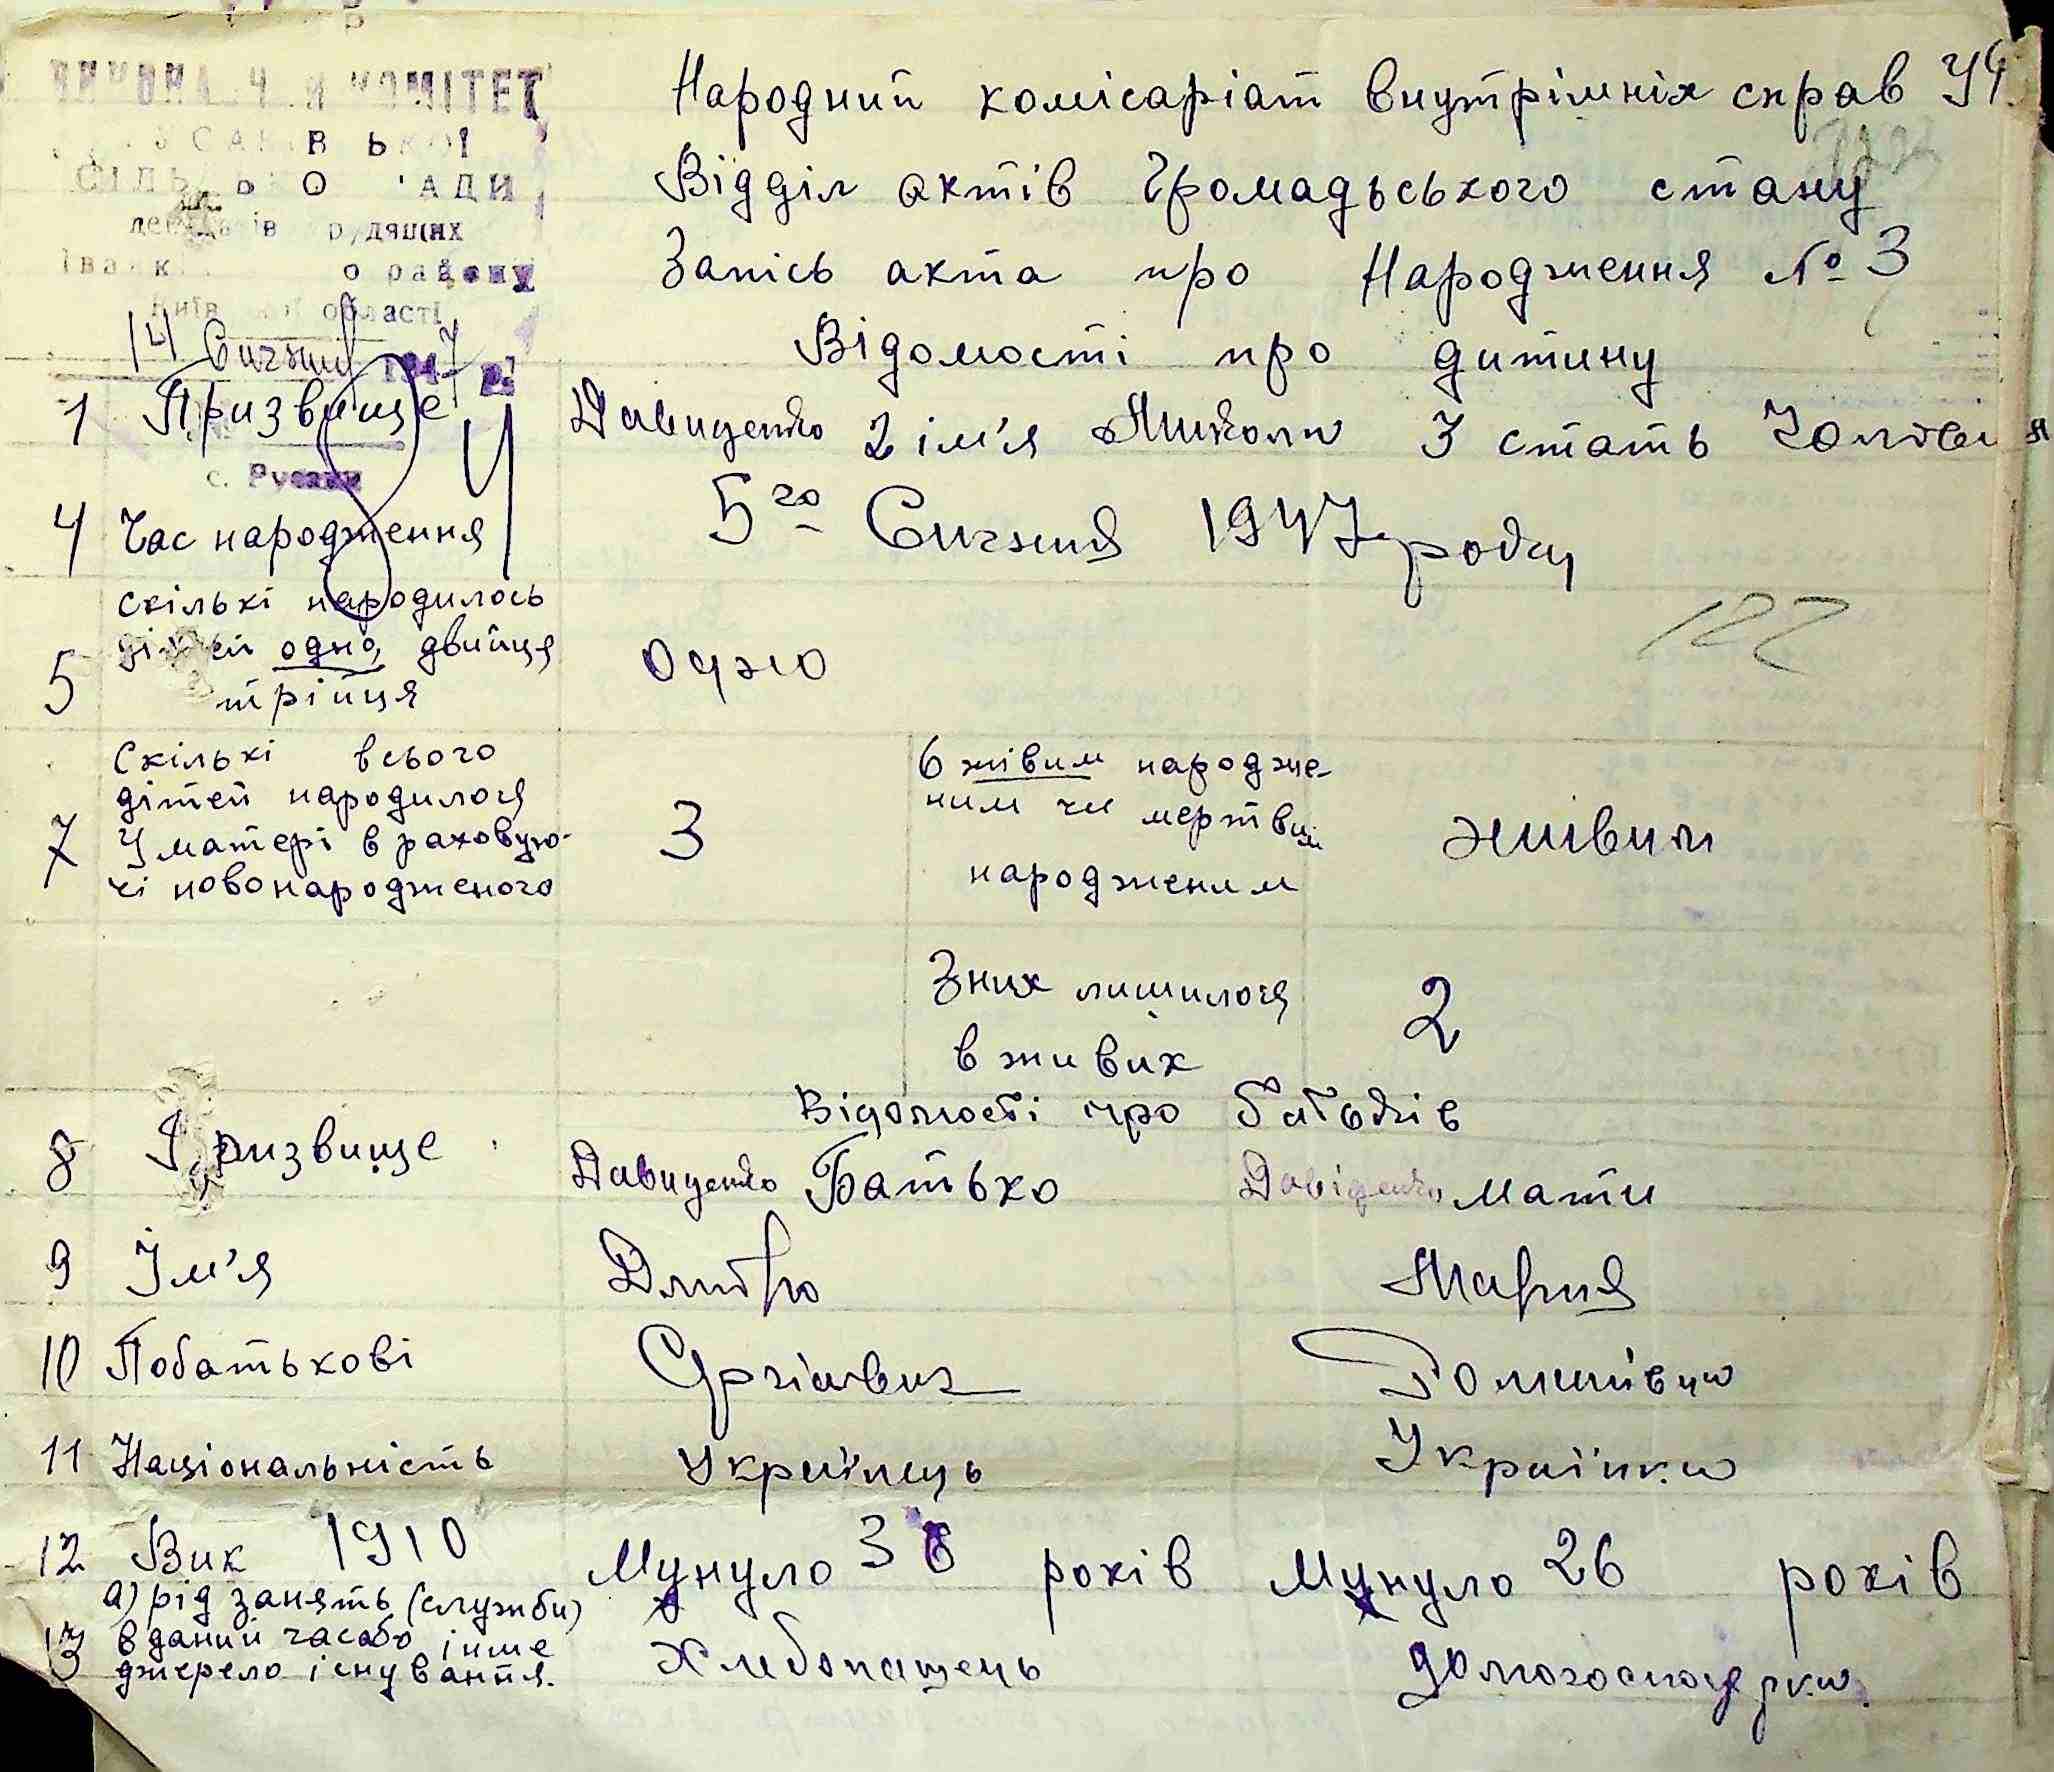 КОМІТЕТ
депутатів трудящих
району
області
14 Січня 1947 р.
с. Русаки
Народний комісаріат внутрішніх справ
Відділ актів Громадьського стану
Запісь акта про Народження № 3
Відомості про дитину
1 Призвище Давиденко 2 ім'я Микола 3 стать
4 Час народження 5го Сичния 1947 року
122
5 Скількі народилось дітей одно, двийця трійця одно
7 Скількі всього дітей народилося У матері в раховую-чі новонародженого 3
6 живим народже-ним чи мертвим народженим живим
З них лишилося в живих 2
Відомості про батьків
8 Призвище Давиденко Батько Давіденко мати
9 Їм'я Дмитро Мария
10 Побатькові Романівна
11 Національність Українець Українка
12 Вик 1910 Мунуло 36 років Мунуло 26 років
13 а) рід занять (служби) в даний час або інше джерело існування. Хлебопашець